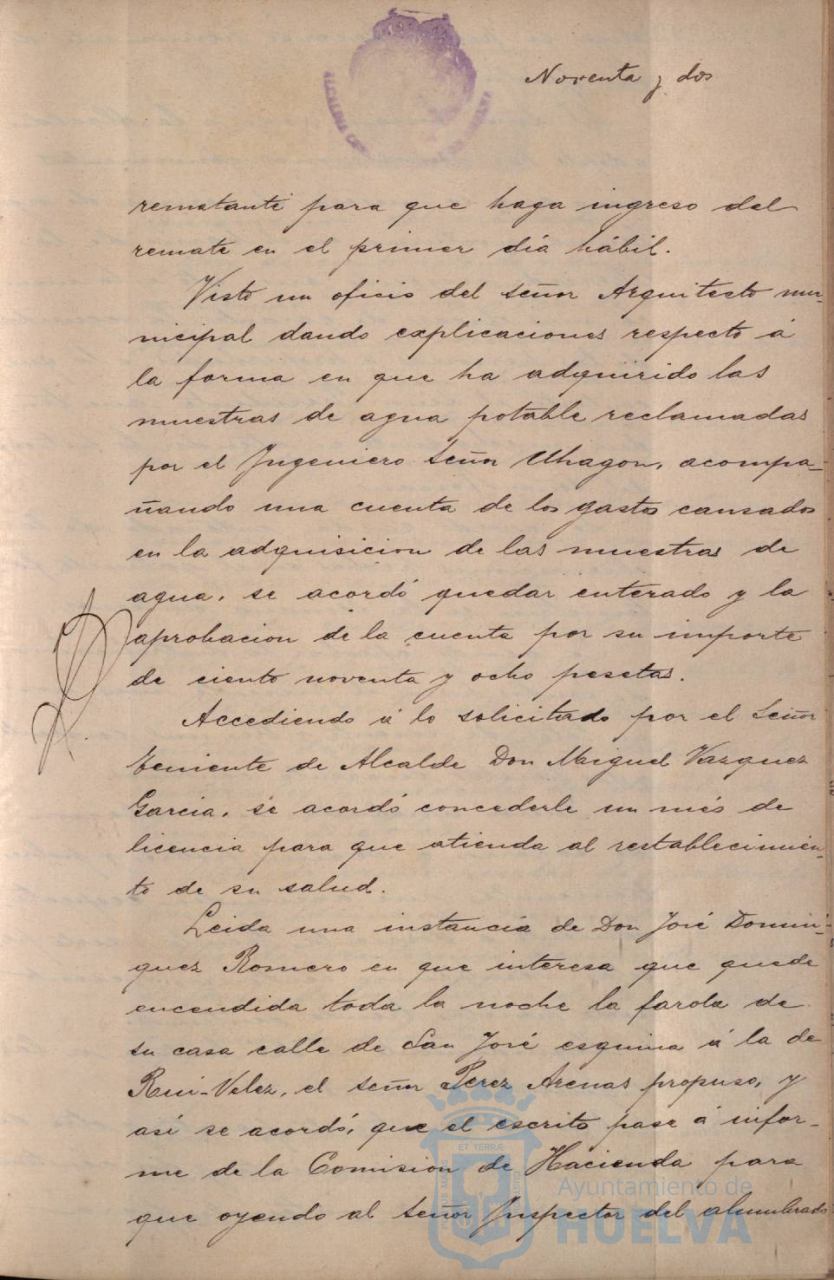 Noventa y dos
rematante para que haga ingreso del
remate en el primer día hábil.
Visto un oficio del señor Arquitecto mu-
nicipal dando explicaciones respecto á
la forma en que ha adquirido las
muestras de agua potable reclamadas
por el Ingeniero Señor Uhagon, acompa-
ñando una cuenta de los gastos causados
en la adquisicion de las muestras de
agua, se acordó quedar enterado y la
aprobacion de la cuenta por su importe
de ciento noventa y ocho pesetas.
Accediendo á lo solicitado por el Señor
Teniente de Alcalde Don Miguel Vazquez
Garcia, se acordó concederle un més de
licencia para que atienda al restablecimien-
to de su salud.
Leida una instancia de Don José Domin-
guez Romero en que interesa que quede
encendida toda la noche la farola de
su casa calle de San José esquina á la de
Rui-Velez, el señor Perez Arenas propuso, y
así se acordó, que el escrito pase á infor-
me de la Comision de Hacienda para
que oyendo al señor Inspector del alumbrado
ET TERRÆ
Ayuntamiento de
HUELVA